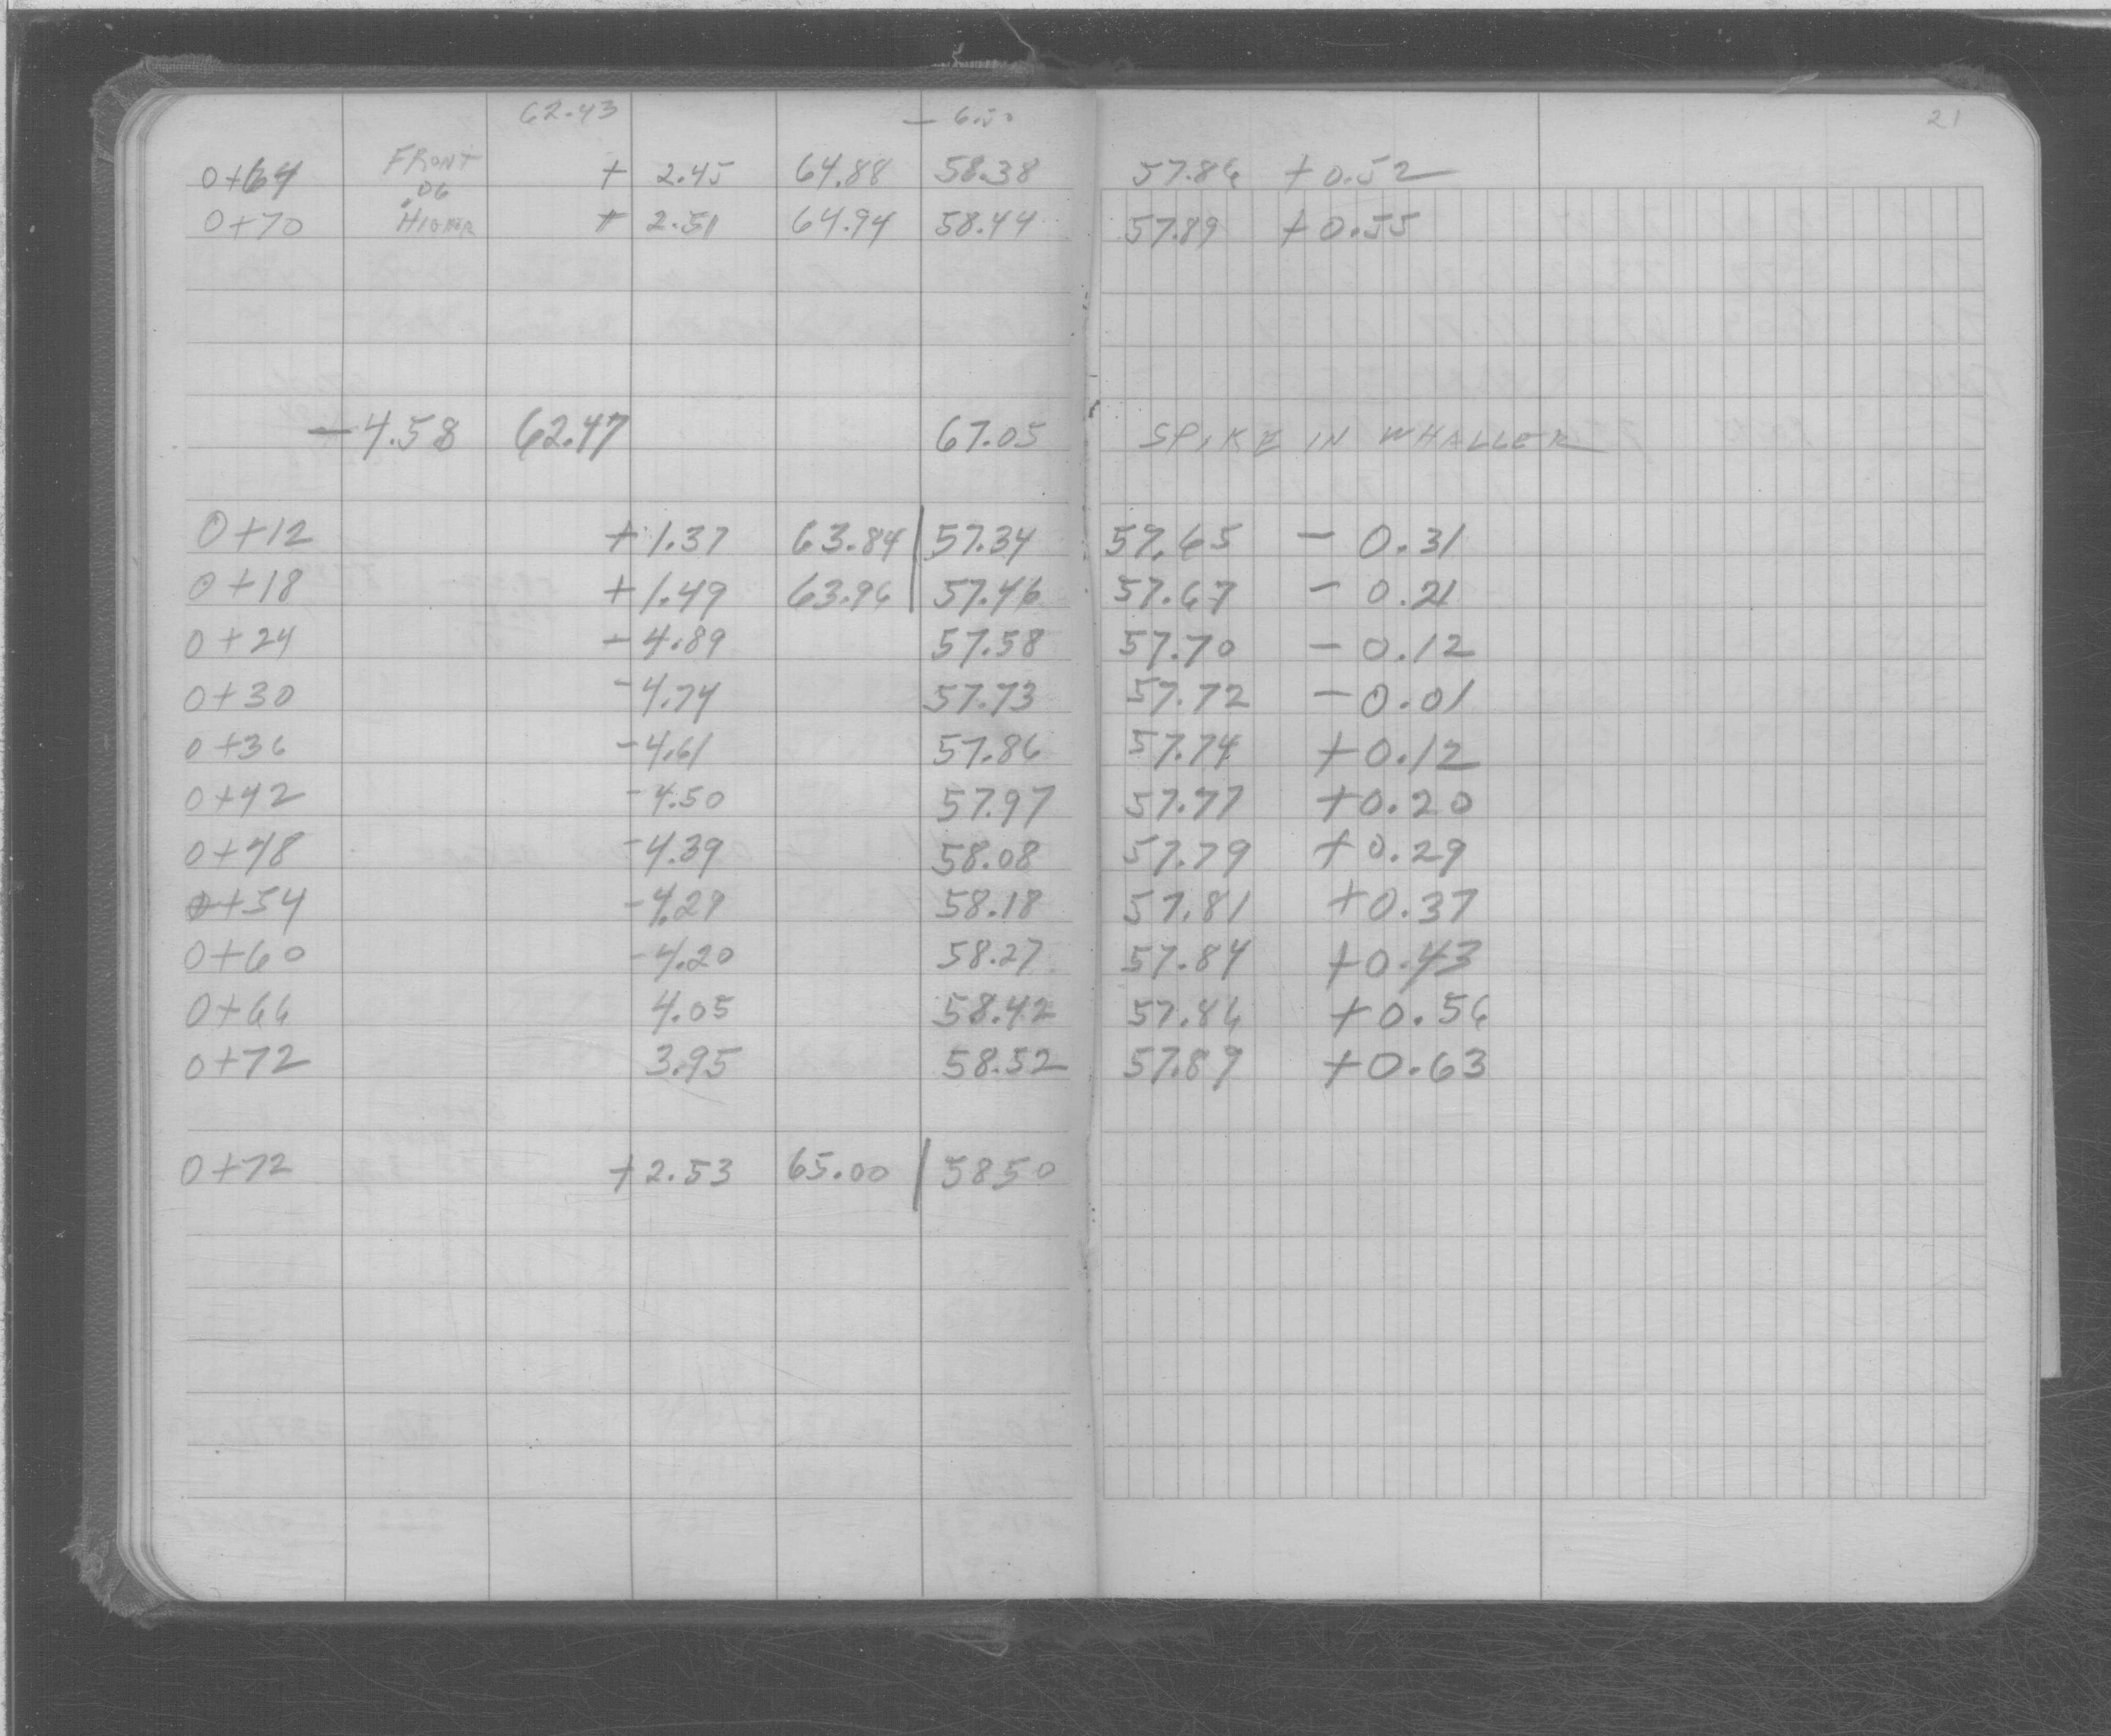 62.43 - 6.50 21
0+64 FRONT + 2.45 64.88 58.38 57.86 +0.52
.06
0+70 HIGHER + 2.51 64.94 58.44 57.89 +0.55
-4.58 62.47 67.05 SPIKE IN WHALLER
0+12 +1.37 63.84 57.34 57.65 - 0.31
0+18 +1.49 63.96 57.46 57.67 - 0.21
0+24 -4.89 57.58 57.70 - 0.12
0+30 -4.74 57.73 57.72 - 0.01
0+36 -4.61 57.86 57.74 +0.12
0+42 -4.50 57.97 57.77 +0.20
0+48 -4.39 58.08 57.79 +0.29
0+54 -4.29 58.18 57.81 +0.37
0+60 -4.20 58.27 57.84 +0.43
0+66 4.05 58.42 57.86 +0.56
0+72 3.95 58.52 57.89 +0.63
0+72 +2.53 65.00 5850